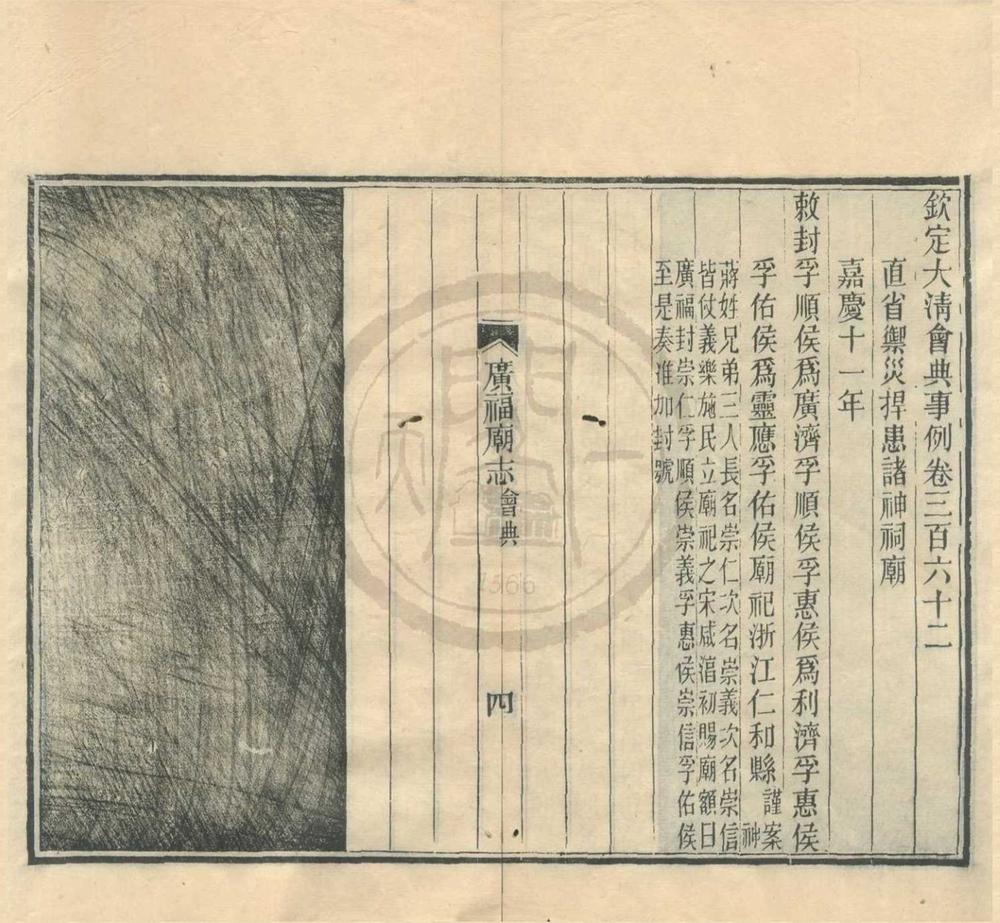 欽定大清會典事例卷三百六十二
直省禦災捍患諸神祠廟
嘉慶十一年
敕封孚順侯爲廣濟孚順侯孚惠侯爲利濟孚惠侯
孚佑侯爲靈應孚佑侯廟祀浙江仁和縣謹案神
蔣姓兄弟三人長名崇仁次名崇義次名崇信
皆仗義樂施民立廟祀之宋咸淳初賜廟額曰
廣福封崇仁孚順侯崇義孚惠侯崇信孚佑侯
至是奏准加封號
廣福廟志 會典
四
1566